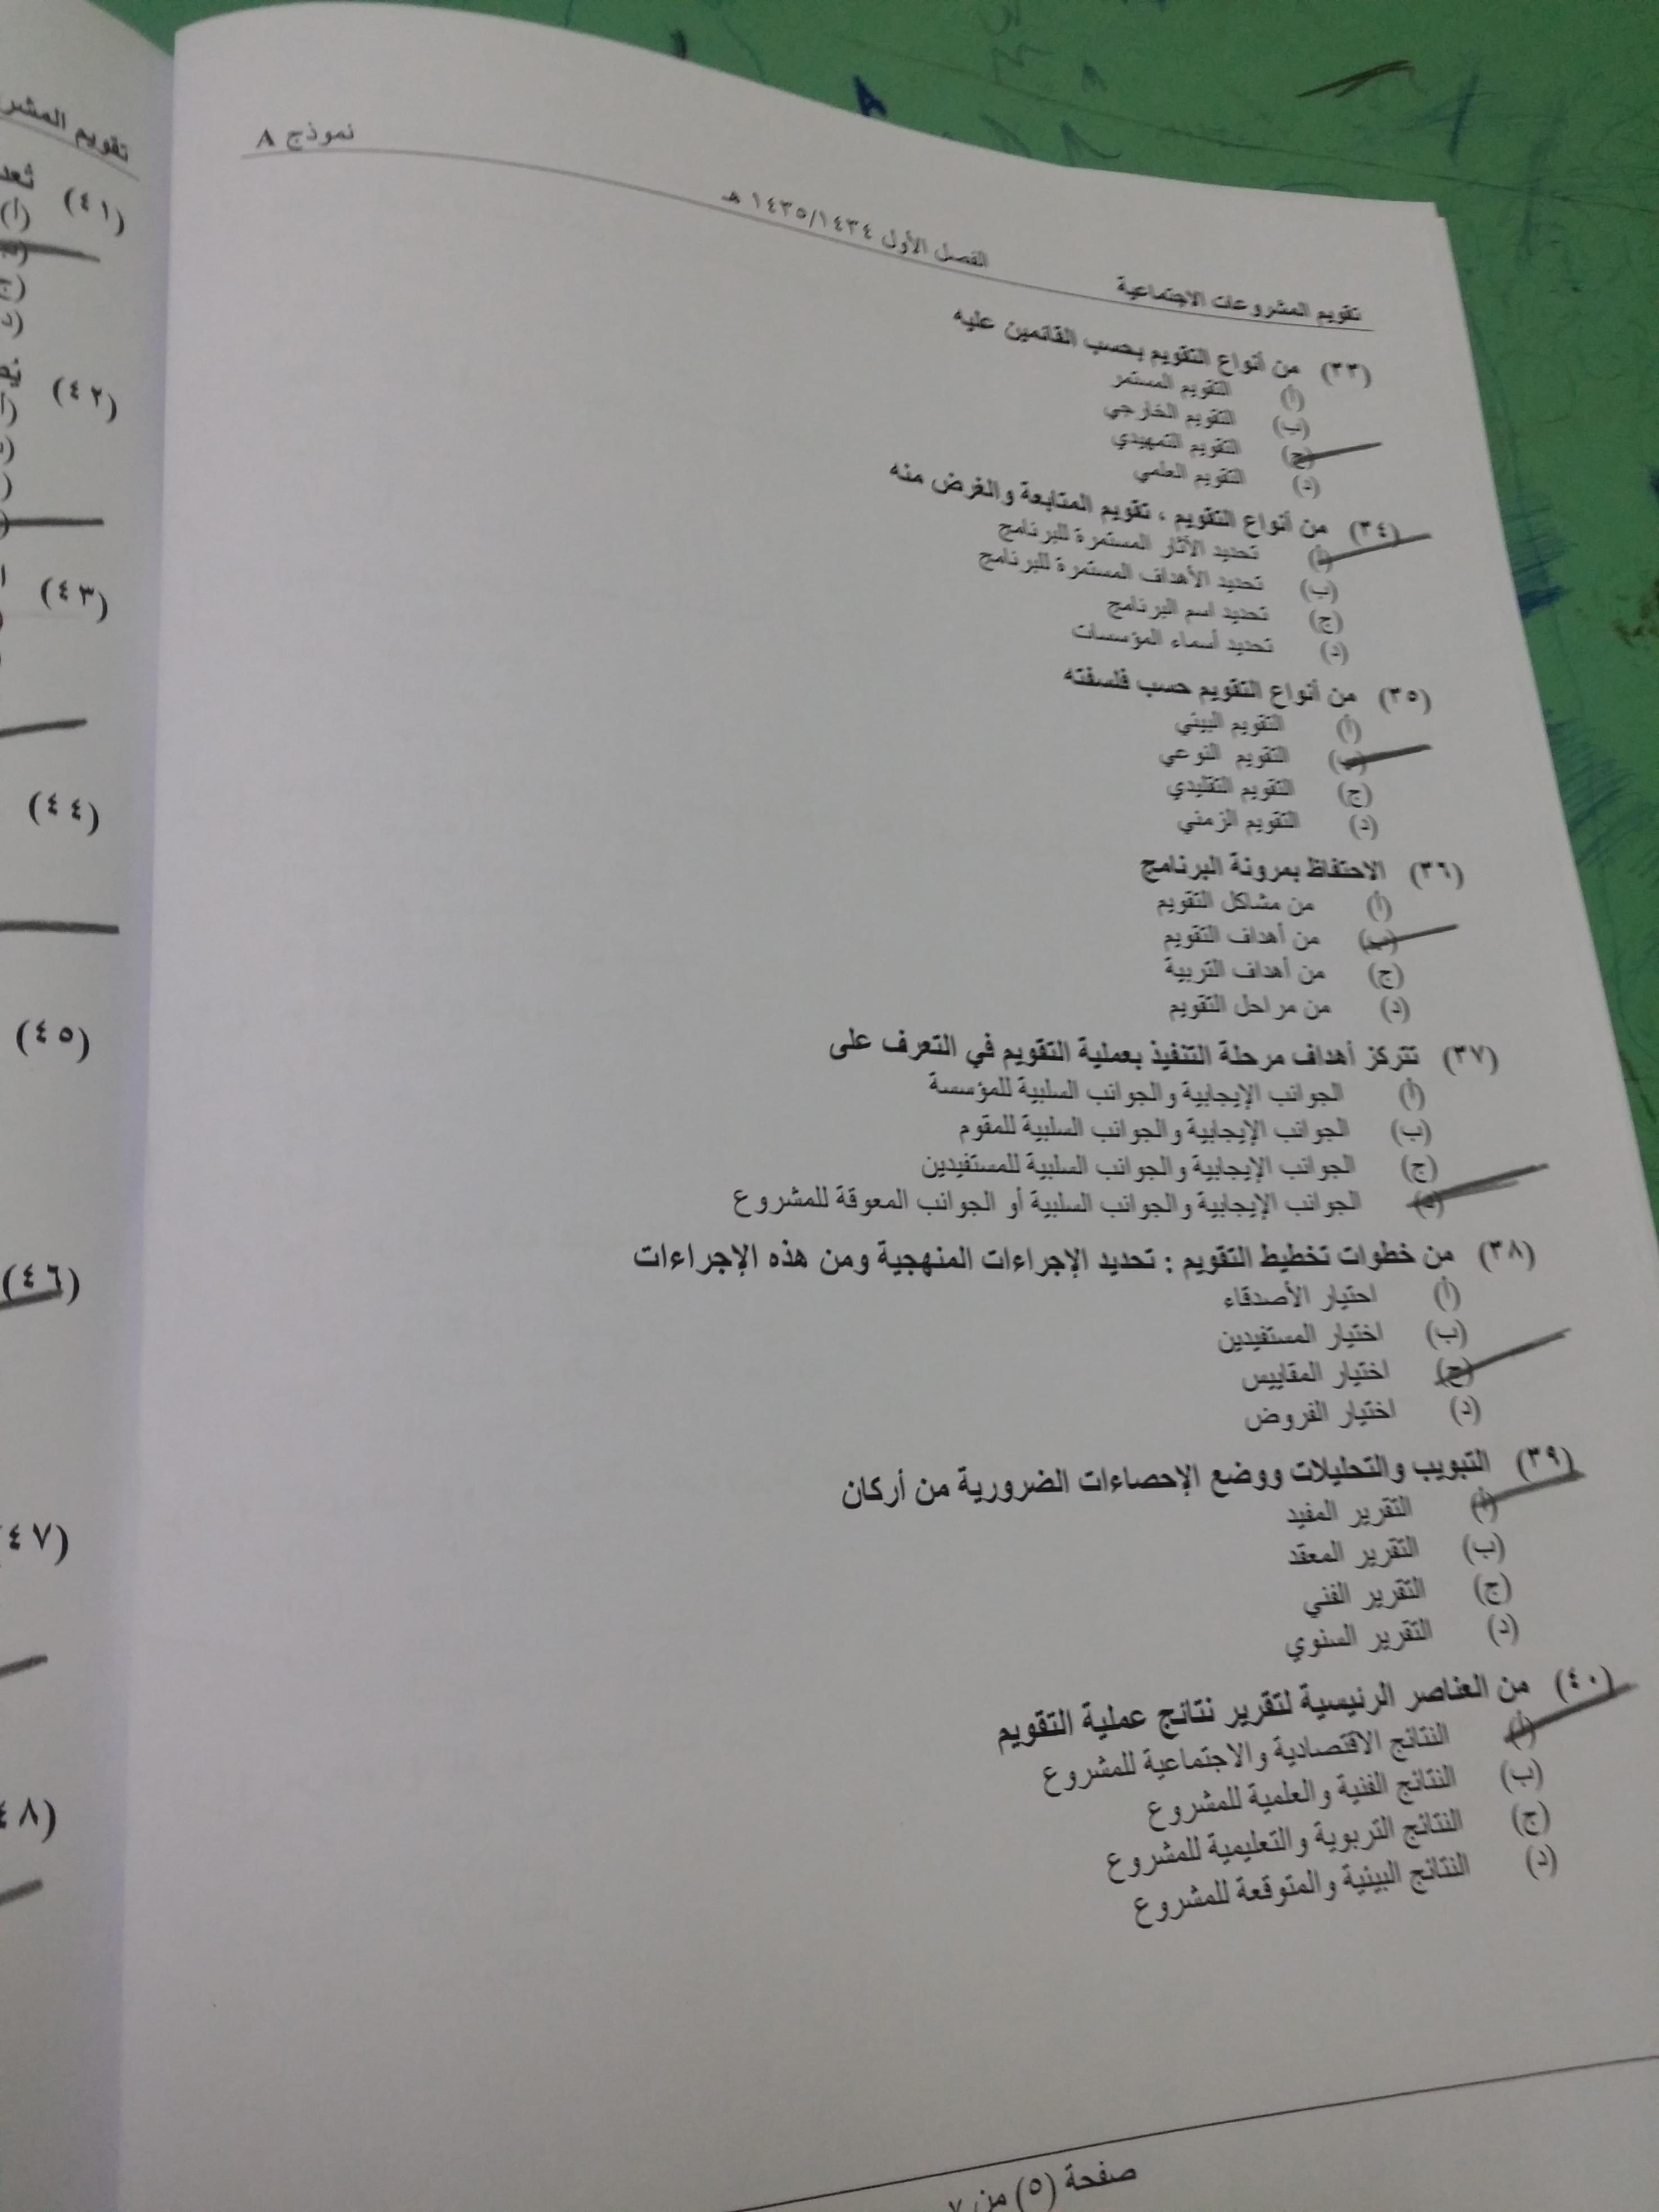 تقويم المشروعات الاجتماعية الفصل الأول ١٤٣٥/١٤٣٤ هـ نموذج A
(٣٣) من أنواع التقويم بحسب القائمين عليه
(أ) التقويم المستمر
(ب) التقويم الخارجي
(ج) التقويم التمهيدي
(د) التقويم العلمي
(٣٤) من أنواع التقويم ، تقويم المتابعة والغرض منه
(أ) تحديد الآثار المستمرة للبرنامج
(ب) تحديد الأهداف المستمرة للبرنامج
(ج) تحديد اسم البرنامج
(د) تحديد أسماء المؤسسات
(٣٥) من أنواع التقويم حسب فلسفته
(أ) التقويم البيئي
(ب) التقويم النوعي
(ج) التقويم التقليدي
(د) التقويم الزمني
(٣٦) الاحتفاظ بمرونة البرنامج
(أ) من مشاكل التقويم
(ب) من أهداف التقويم
(ج) من أهداف التربية
(د) من مراحل التقويم
(٣٧) تتركز أهداف مرحلة التنفيذ بعملية التقويم في التعرف على
(أ) الجوانب الإيجابية والجوانب السلبية للمؤسسة
(ب) الجوانب الإيجابية والجوانب السلبية للمقوم
(ج) الجوانب الإيجابية والجوانب السلبية للمستفيدين
(د) الجوانب الإيجابية والجوانب السلبية أو الجوانب المعوقة للمشروع
(٣٨) من خطوات تخطيط التقويم : تحديد الإجراءات المنهجية ومن هذه الإجراءات
(أ) احتيار الأصدقاء
(ب) اختيار المستفيدين
(ج) اختيار المقاييس
(د) اختيار الفروض
(٣٩) التبويب والتحليلات ووضع الإحصاءات الضرورية من أركان
(أ) التقرير المفيد
(ب) التقرير المعقد
(ج) التقرير الفني
(د) التقرير السنوي
(٤٠) من العناصر الرئيسية لتقرير نتائج عملية التقويم
(أ) النتائج الاقتصادية والاجتماعية للمشروع
(ب) النتائج الفنية والعلمية للمشروع
(ج) النتائج التربوية والتعليمية للمشروع
(د) النتائج البيئية والمتوقعة للمشروع
صفحة (٥) من ٧
تقويم المشر
(٤١) تُعد
(٤٢)
(٤٣)
(٤٤)
(٤٥)
(٤٦)
٤٧)
٤٨)